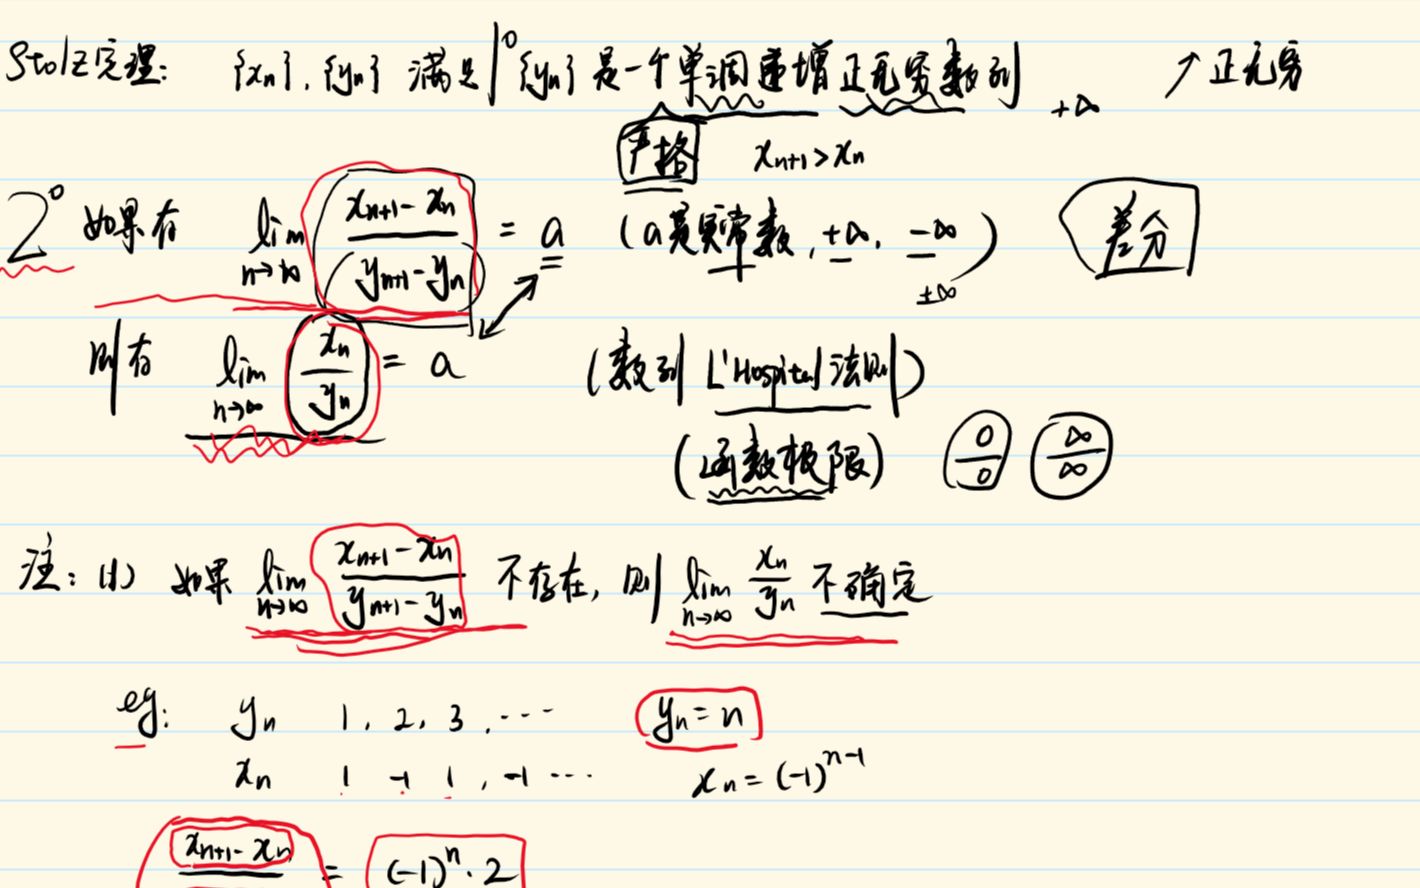 Stolz定理: {xn}, {yn} 满足 1° {yn} 是一个单调递增正无穷数列 ↗正无穷
+∞
严格 xn+1 > xn
2° 如果有 lim n→∞ (xn+1 - xn)/(yn+1 - yn) = a (a是实常数, +∞, -∞) 差分
±∞
则有 lim n→∞ xn/yn = a (数列 L'Hospital 法则)
(函数极限) 0/0 ∞/∞
注: (1) 如果 lim n→∞ (xn+1 - xn)/(yn+1 - yn) 不存在, 则 lim n→∞ xn/yn 不确定
eg: yn 1, 2, 3, ... yn = n
xn 1 -1 1, -1 ... xn = (-1)^(n-1)
xn+1 - xn = (-1)^n · 2